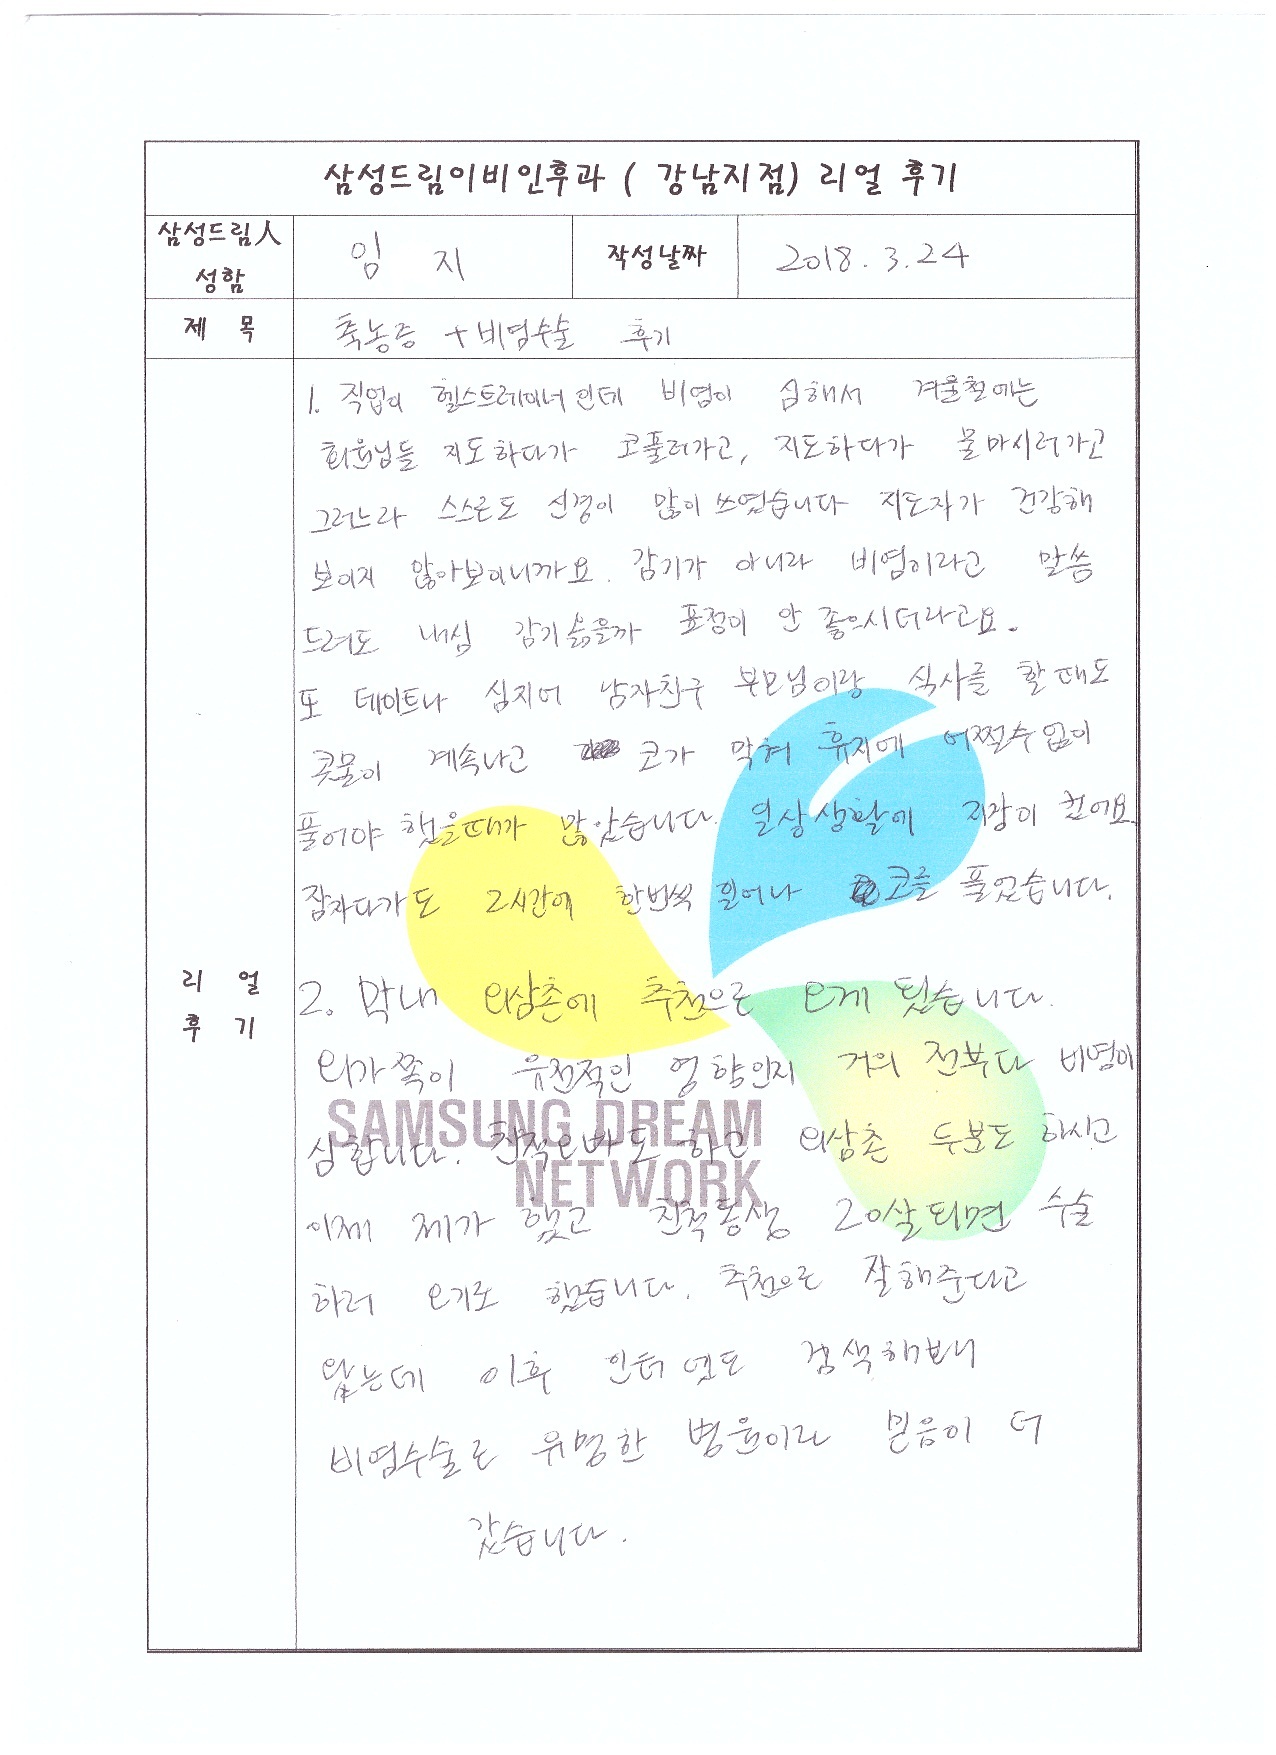 삼성드림이비인후과 ( 강남지점) 리얼 후기
삼성드림人 성함
임 지
작성날짜
2018. 3. 24
제 목
축농증 + 비염수술 후기
리 얼 후 기
1. 직업이 헬스트레이너인데 비염이 심해서 겨울철에는
회원님들 지도하다가 코풀러가고, 지도하다가 물마시러가고
그러느라 스스로도 신경이 많이 쓰였습니다 지도자가 건강해
보이지 않아보이니까요. 감기가 아니라 비염이라고 말씀
드려도 내심 감기 옮을까 표정이 안 좋으시더라고요.
또 데이트나 심지어 남자친구 부모님이랑 식사를 할때도
콧물이 계속나고 코가 막혀 휴지에 어쩔수없이
풀어야 했을때가 많았습니다. 일상생활에 지장이 컸어요.
잠자다가도 2시간에 한번씩 일어나 코를 풀었습니다.
2. 막내 외삼촌에 추천으로 오게 됬습니다.
외가쪽이 유전적인 영향인지 거의 전부다 비염이
심합니다. 친척오빠도 하고 외삼촌 두분도 하시고
이제 제가 했고 친척동생 20살되면 수술
하러 오기로 했습니다. 추천으로 잘해준다고
왔는데 이후 인터넷도 검색해보니
비염수술로 유명한 병원이라 믿음이 더
갔습니다.
SAMSUNG DREAM
NETWORK